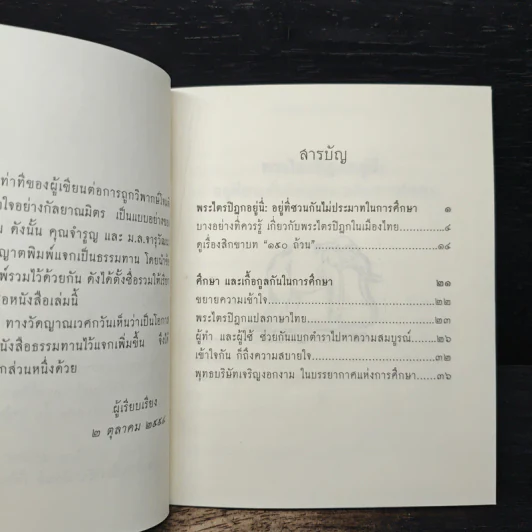 ท่าทีของผู้เขียนต่อการถูกวิพากษ์
ใจอย่างกัลยาณมิตร เป็นแบบอย่าง
ดังนั้น คุณจำรูญ และ ม.ล.จารุวัฒน
ญาตพิมพ์แจกเป็นธรรมทาน โดย
พ์รวมไว้ด้วยกัน ดังได้ตั้งชื่อรวม
อหนังสือเล่มนี้
ทางวัดญาณเวศกวันเห็นว่าเป็นโอกาส
นังสือธรรมทานไว้แจกเพิ่มขึ้น
กส่วนหนึ่งด้วย
ผู้เรียบเรียง
๒ ตุลาคม
สารบัญ
พระไตรปิฎกอยู่นี่: อยู่ที่ชวนกันไม่ประมาทในการศึกษา ๑
บางอย่างที่ควรรู้ เกี่ยวกับพระไตรปิฎกในเมืองไทย.......๔
ดูเรื่องสิกขาบท "๑๙๐ ถ้วน"..................๑๔
ศึกษา และเกื้อกูลกันในการศึกษา ๒๑
ขยายความเข้าใจ..................๒๒
พระไตรปิฎกแปลภาษาไทย..................๒๓
ผู้ทำ และผู้ใช้ ช่วยกันแบกตำราไปหาความสมบูรณ์......๒๖
เข้าใจกัน ก็ถึงความสบายใจ..................๓๒
พุทธบริษัทเจริญงอกงาม ในบรรยากาศแห่งการศึกษา......๓๖